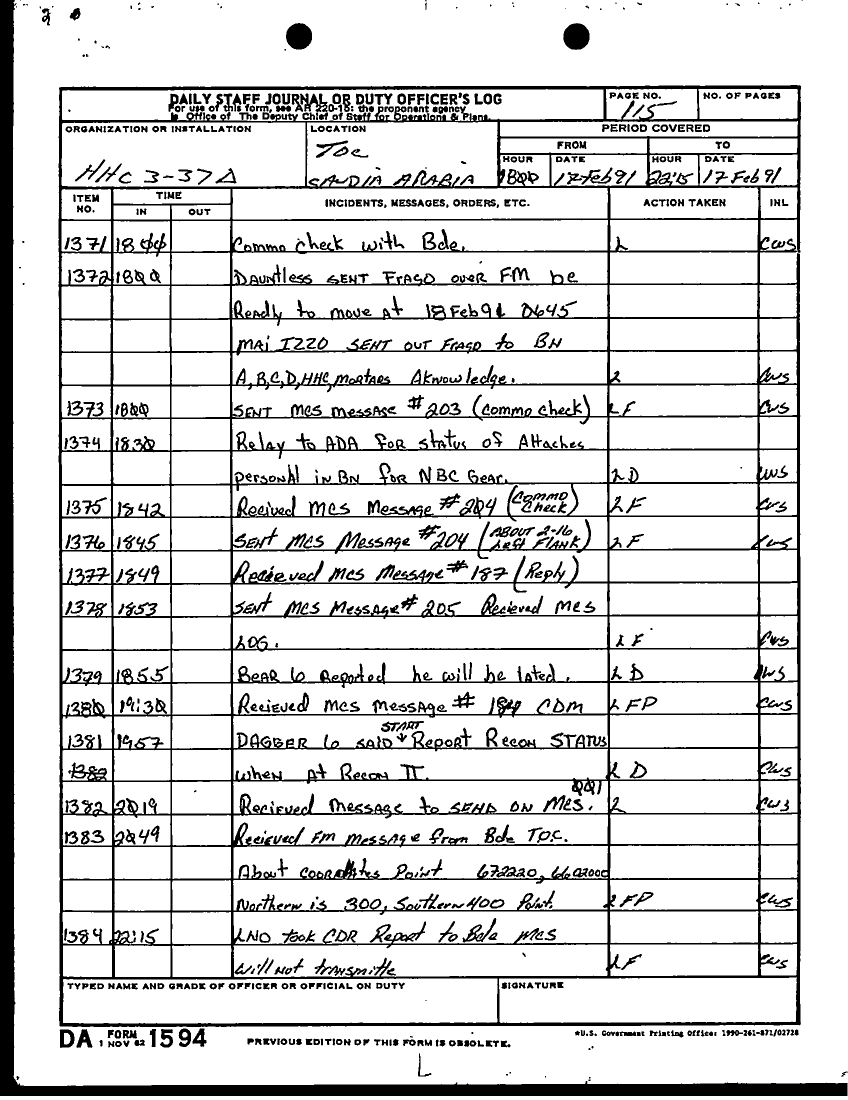 DAILY STAFF JOURNAL OR DUTY OFFICER'S LOG
For use of this form, see AR 220-15; the proponent agency
is Office of The Deputy Chief of Staff for Operations & Plans.
PAGE NO.
115
NO. OF PAGES
ORGANIZATION OR INSTALLATION
HHC 3-37 A
LOCATION
TOC
SAUDIA ARABIA
PERIOD COVERED
FROM TO
HOUR DATE HOUR DATE
1800 17 Feb 91 2215 17 Feb 91
ITEM NO. TIME IN OUT INCIDENTS, MESSAGES, ORDERS, ETC. ACTION TAKEN INL
1371 1800 Commo check with Bde. L CWS
1372 1800 Dauntless SENT FRAGO over FM be
Ready to move At 18 Feb 91 0645
MAj IZZO SENT out FRAGO to BN
A, B, C, D, HHC, mortars Aknowledge. L CWS
1373 1800 SENT MCS message #203 (commo check) LF CWS
1374 1830 Relay to ADA for status of Attaches
personal in BN for NBC Gear. LD CWS
1375 1842 Recived MCS Message #204 (Commo Check) LF CWS
1376 1845 SENT MCS Message #204 (ABOUT 2-16 FLANK) LF CWS
1377 1849 Recieved MCS Message #187 (Reply)
1378 1853 SENT MCS Message # 205 Recieved MCS
LOG. LF CWS
1379 1855 BEAR 6 Reported he will be lated. LD CWS
1380 19:30 Recieved MCS Message # CDM LFP CWS
1381 1957 DAGGER 6 SAID START Report Recon STATUS
1382 when At Recon II. LD CWS
1382 2019 Recieved message to SEND ON MCS. 001 L CWS
1383 2049 Recieved Fm message from Bde TOC.
About coordates Point 672220, 6602000
Northern is 300, Southern 400 Point. LFP CWS
1384 22:15 LNO took CDR Report to Bde MCS
will not transmitte LF CWS
TYPED NAME AND GRADE OF OFFICER OR OFFICIAL ON DUTY
SIGNATURE
DA FORM 1 NOV 62 1594
PREVIOUS EDITION OF THIS FORM IS OBSOLETE.
*U.S. Government Printing Office: 1990-261-871/02728